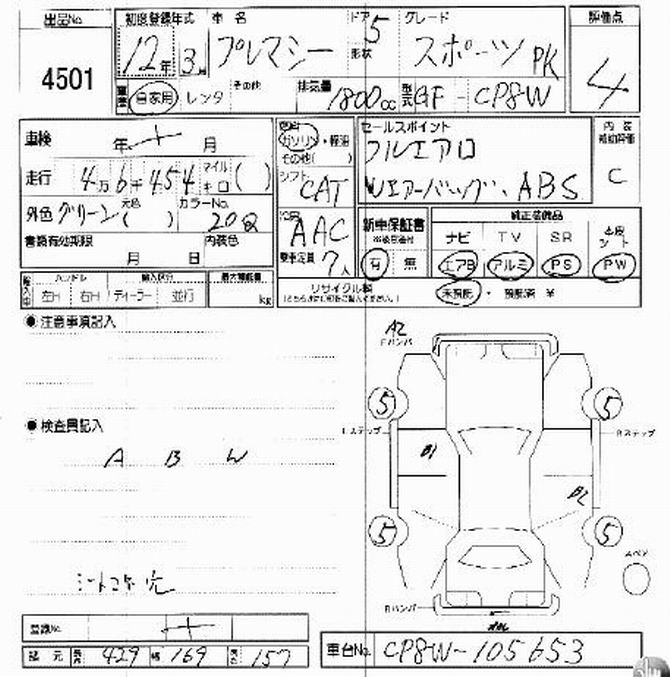 出品No. 初度登録年式 車名 ドア 5 グレード 評価点
4501 12年 3月 プレマシー 形状 スポーツ PK 4
車歴 自家用 レンタ その他 排気量 1800cc 型式 GF - CP8W
車検 年 月 燃料 ガソリン・軽油 その他( ) セールスポイント 内装補助評価
フルエアロ C
走行 4万6千454 マイル キロ ( ) シフト CAT Wエアーバッグ、ABS
外色 グリーン 元色 ( ) カラーNo. 20Q 冷房 AAC 新車保証書 純正装備品
書類有効期限 内装色 乗車定員 7人 有 無 ナビ TV SR 本皮シート
月 日 エアB アルミ PS PW
輸入車 ハンドル 輸入区分 最大積載量 リサイクル券
左H 右H ディーラー 並行 kg 未預託・預託済 ¥
●注意事項記入 A2
Fバンパ
5 5
●検査員記入 Lステップ Rステップ
A B W B1
B2
5 5
スペア
シートコゲ 穴
Rバンパ
登録No.
諸元 長さ 429 幅 169 高さ 157 車台No. CP8W-105653